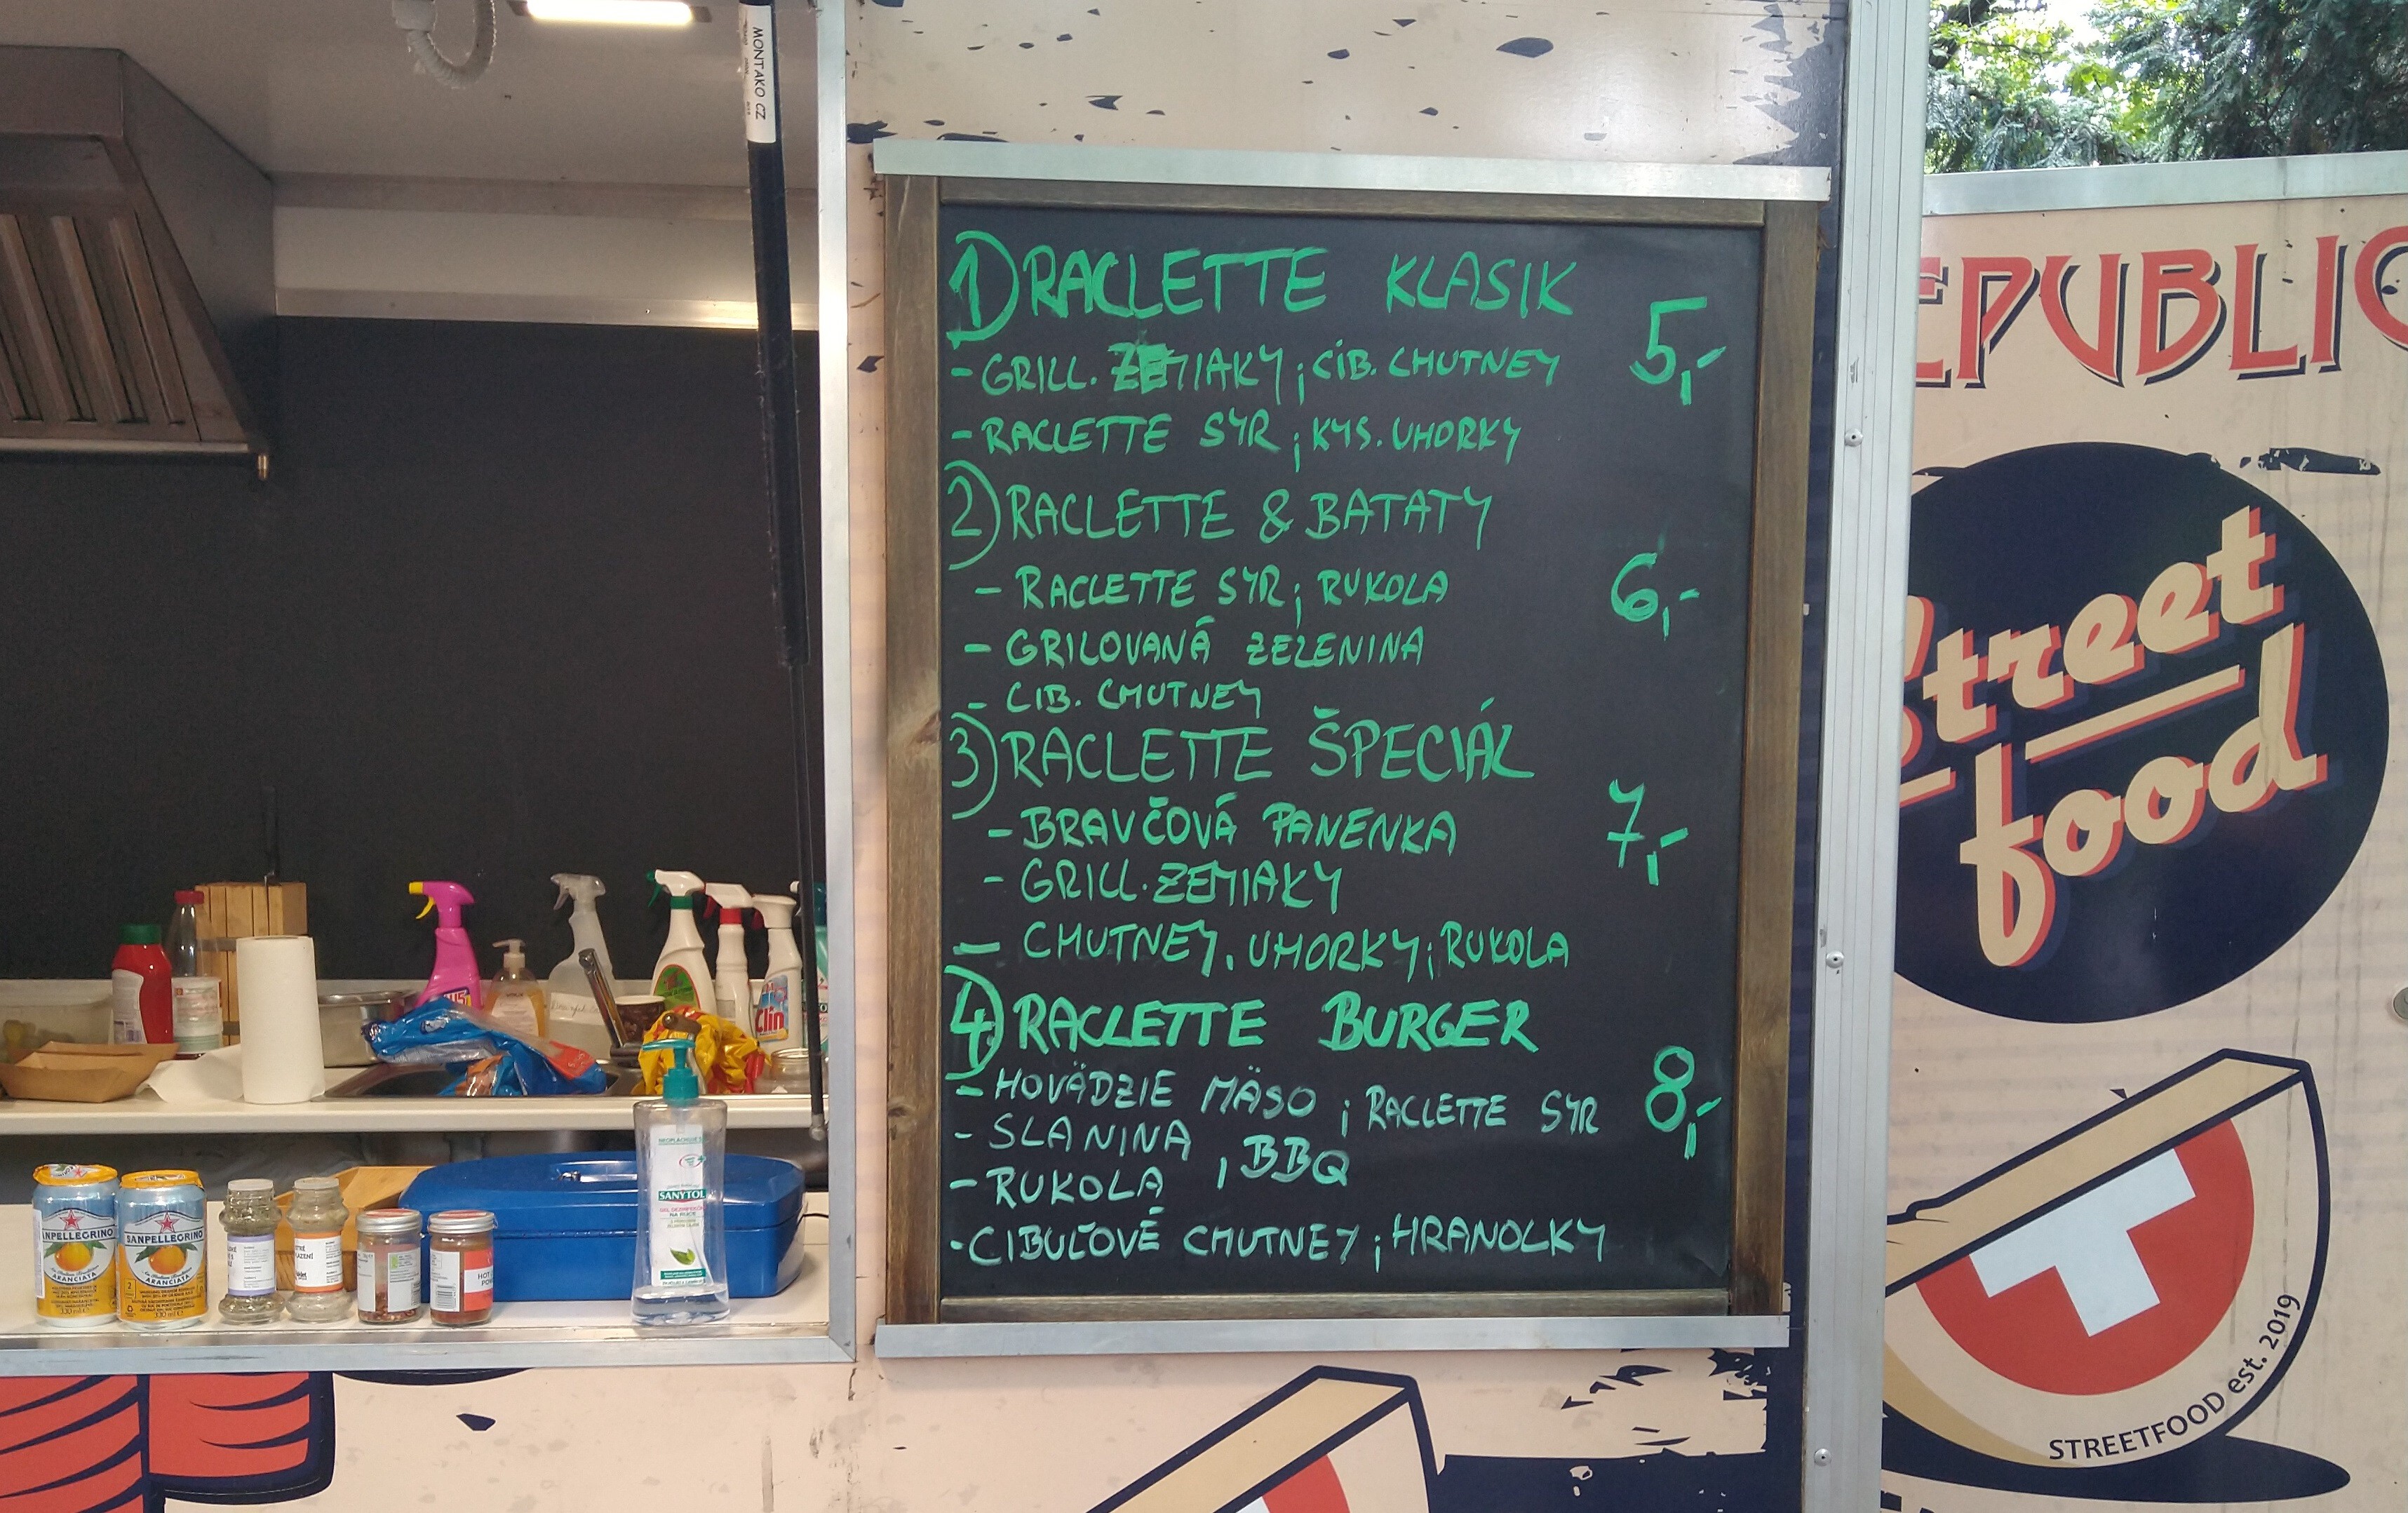 MONTAKO CZ
1) RACLETTE KLASIK
5,-
- GRILL. ZEMIAKY ; CIB. CHUTNEY
- RACLETTE SYR ; KYS. UHORKY
2) RACLETTE & BATATY
6,-
- RACLETTE SYR ; RUKOLA
- GRILOVANÁ ZELENINA
- CIB. CHUTNEY
3) RACLETTE ŠPECIÁL
7,-
- BRAVČOVÁ PANENKA
- GRILL. ZEMIAKY
- CHUTNEY, UHORKY ; RUKOLA
4) RACLETTE BURGER
8,-
- HOVÄDZIE MÄSO ; RACLETTE SYR
- SLANINA , BBQ
- RUKOLA
- CIBUĽOVÉ CHUTNEY ; HRANOLKY
EPUBLIC
Street
food
STREETFOOD est. 2019
Clin
SANPELLEGRINO
ARANCIATA
330 ml e
ANPELLEGRINO
ARANCIATA
330 ml e
HOT
SANYTOL